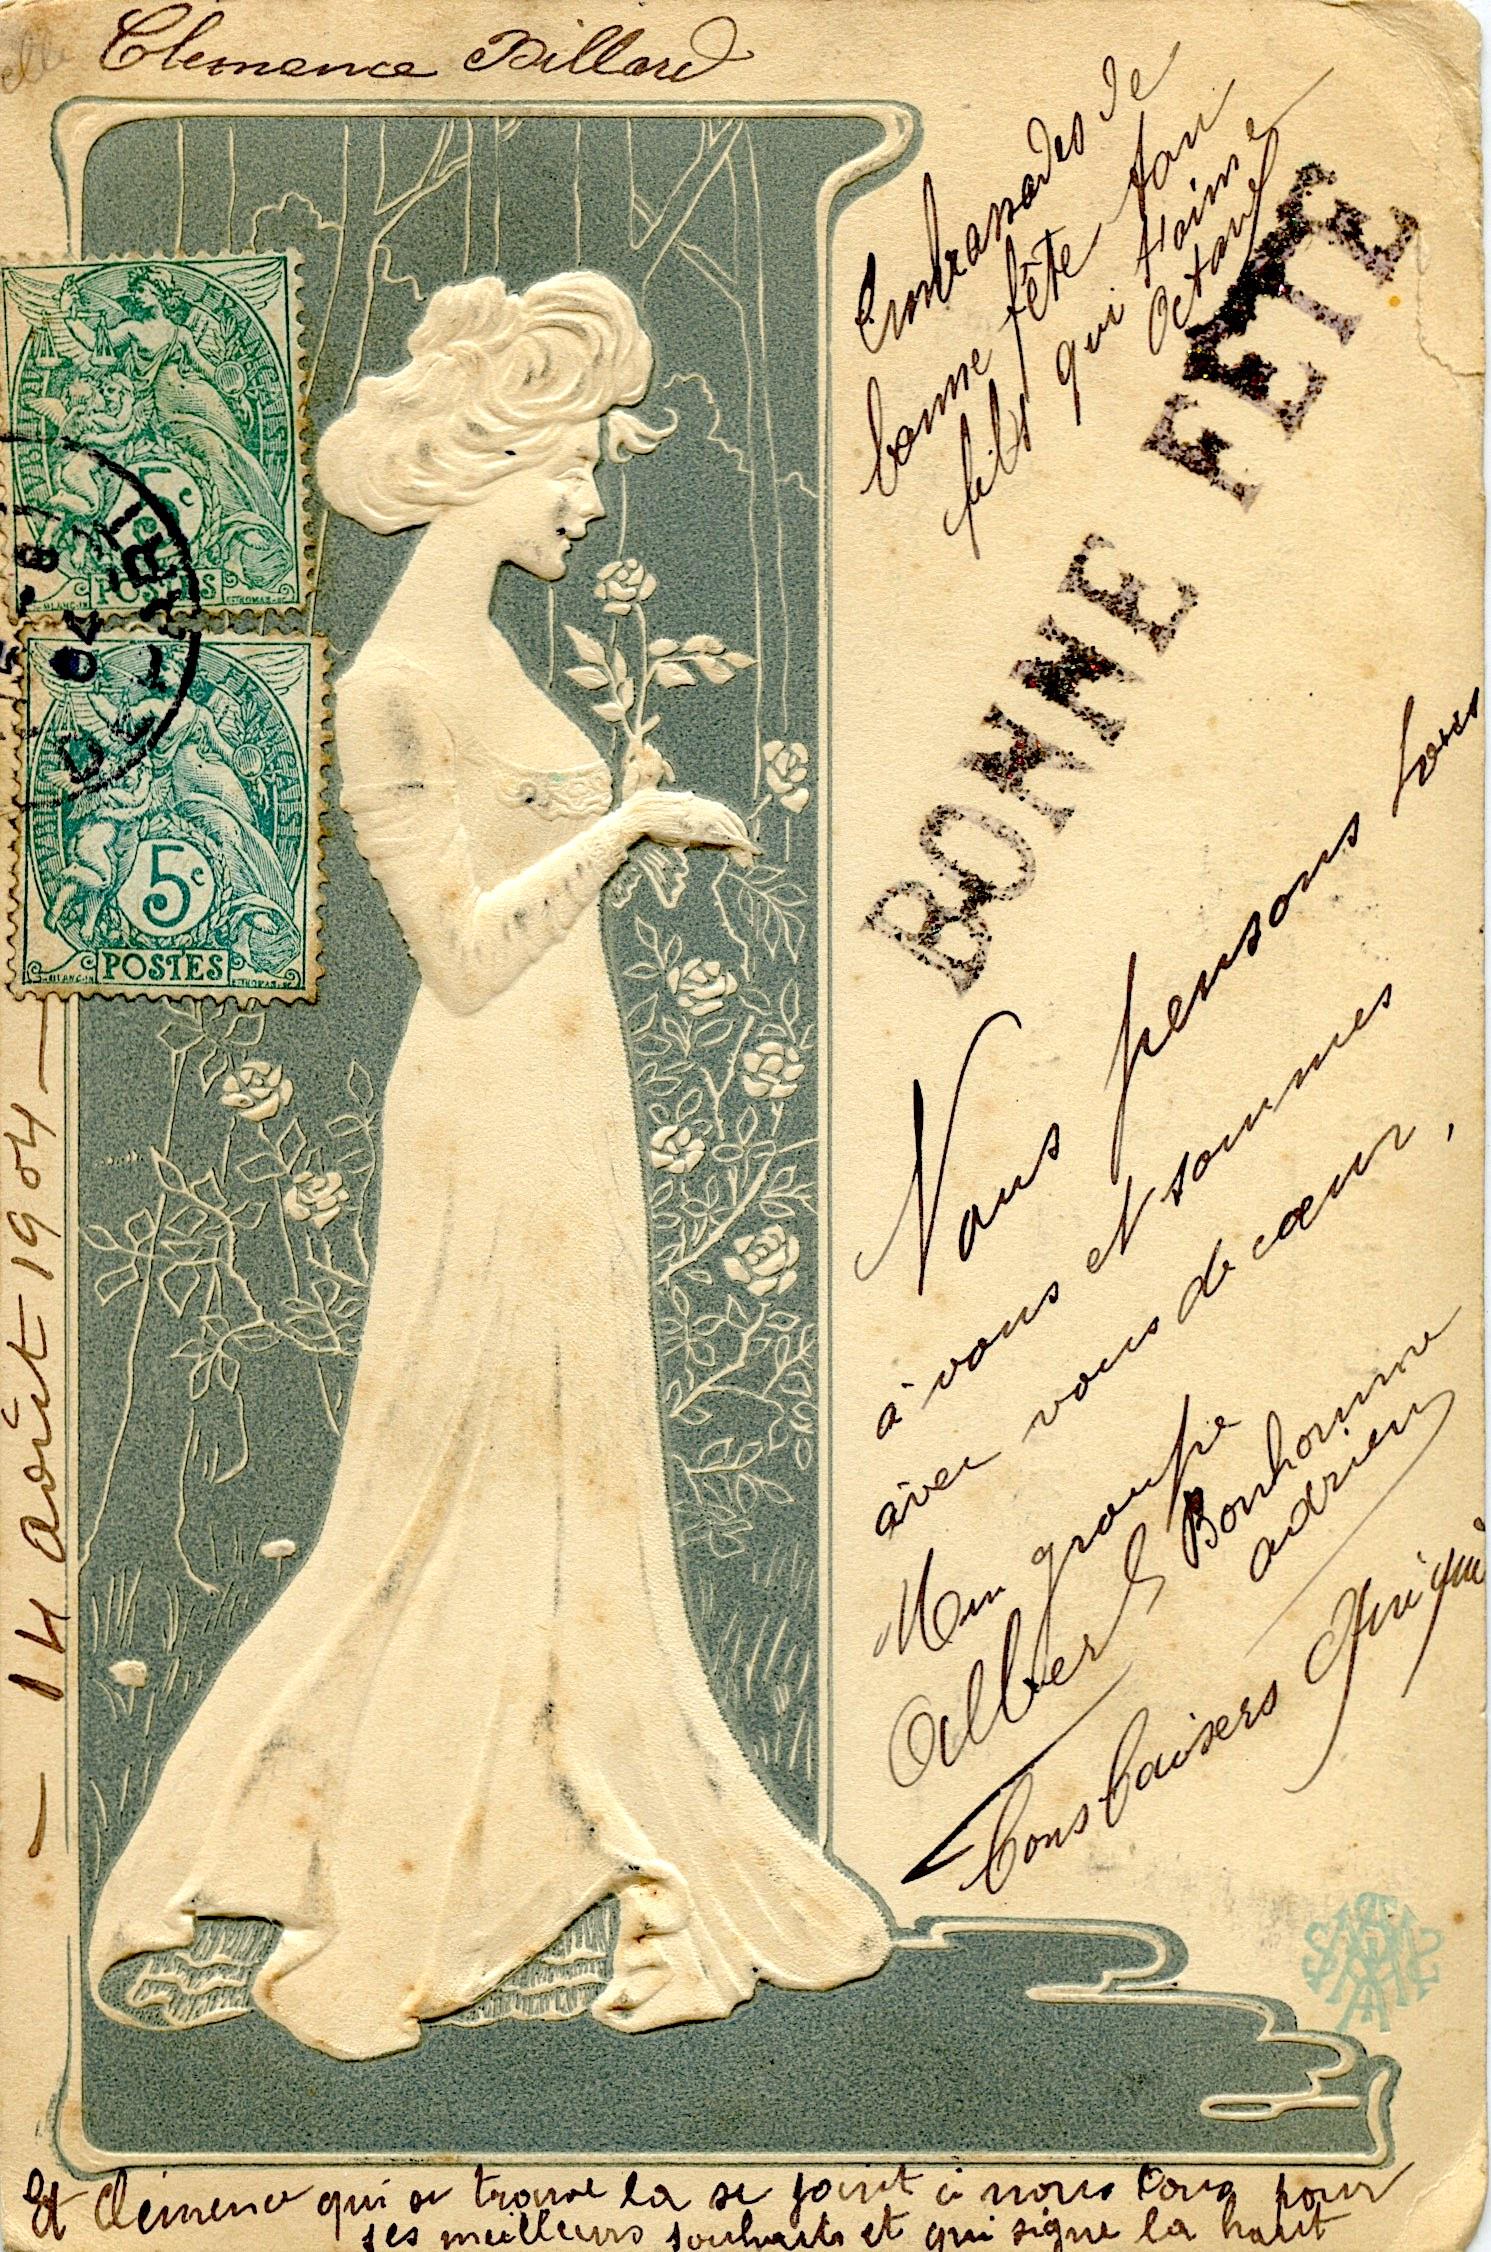 Clemence Billard
Embrassades de
bonne fête ton
fils qui t'aime
Octave
BONNE FETE
Nous pensons tous
à vous et sommes
avec vous de cœur,
Mon groupe
Albert Bonhomme
adrien
Bons baisers
- 14 Août 1904 -
RÉPUBLIQUE FRANÇAISE
5c
POSTES
RÉPUBLIQUE FRANÇAISE
5c
POSTES
Et Clémence qui se trouve la se joint à nous tous pour
ses meilleurs souhaits et qui signe la haut